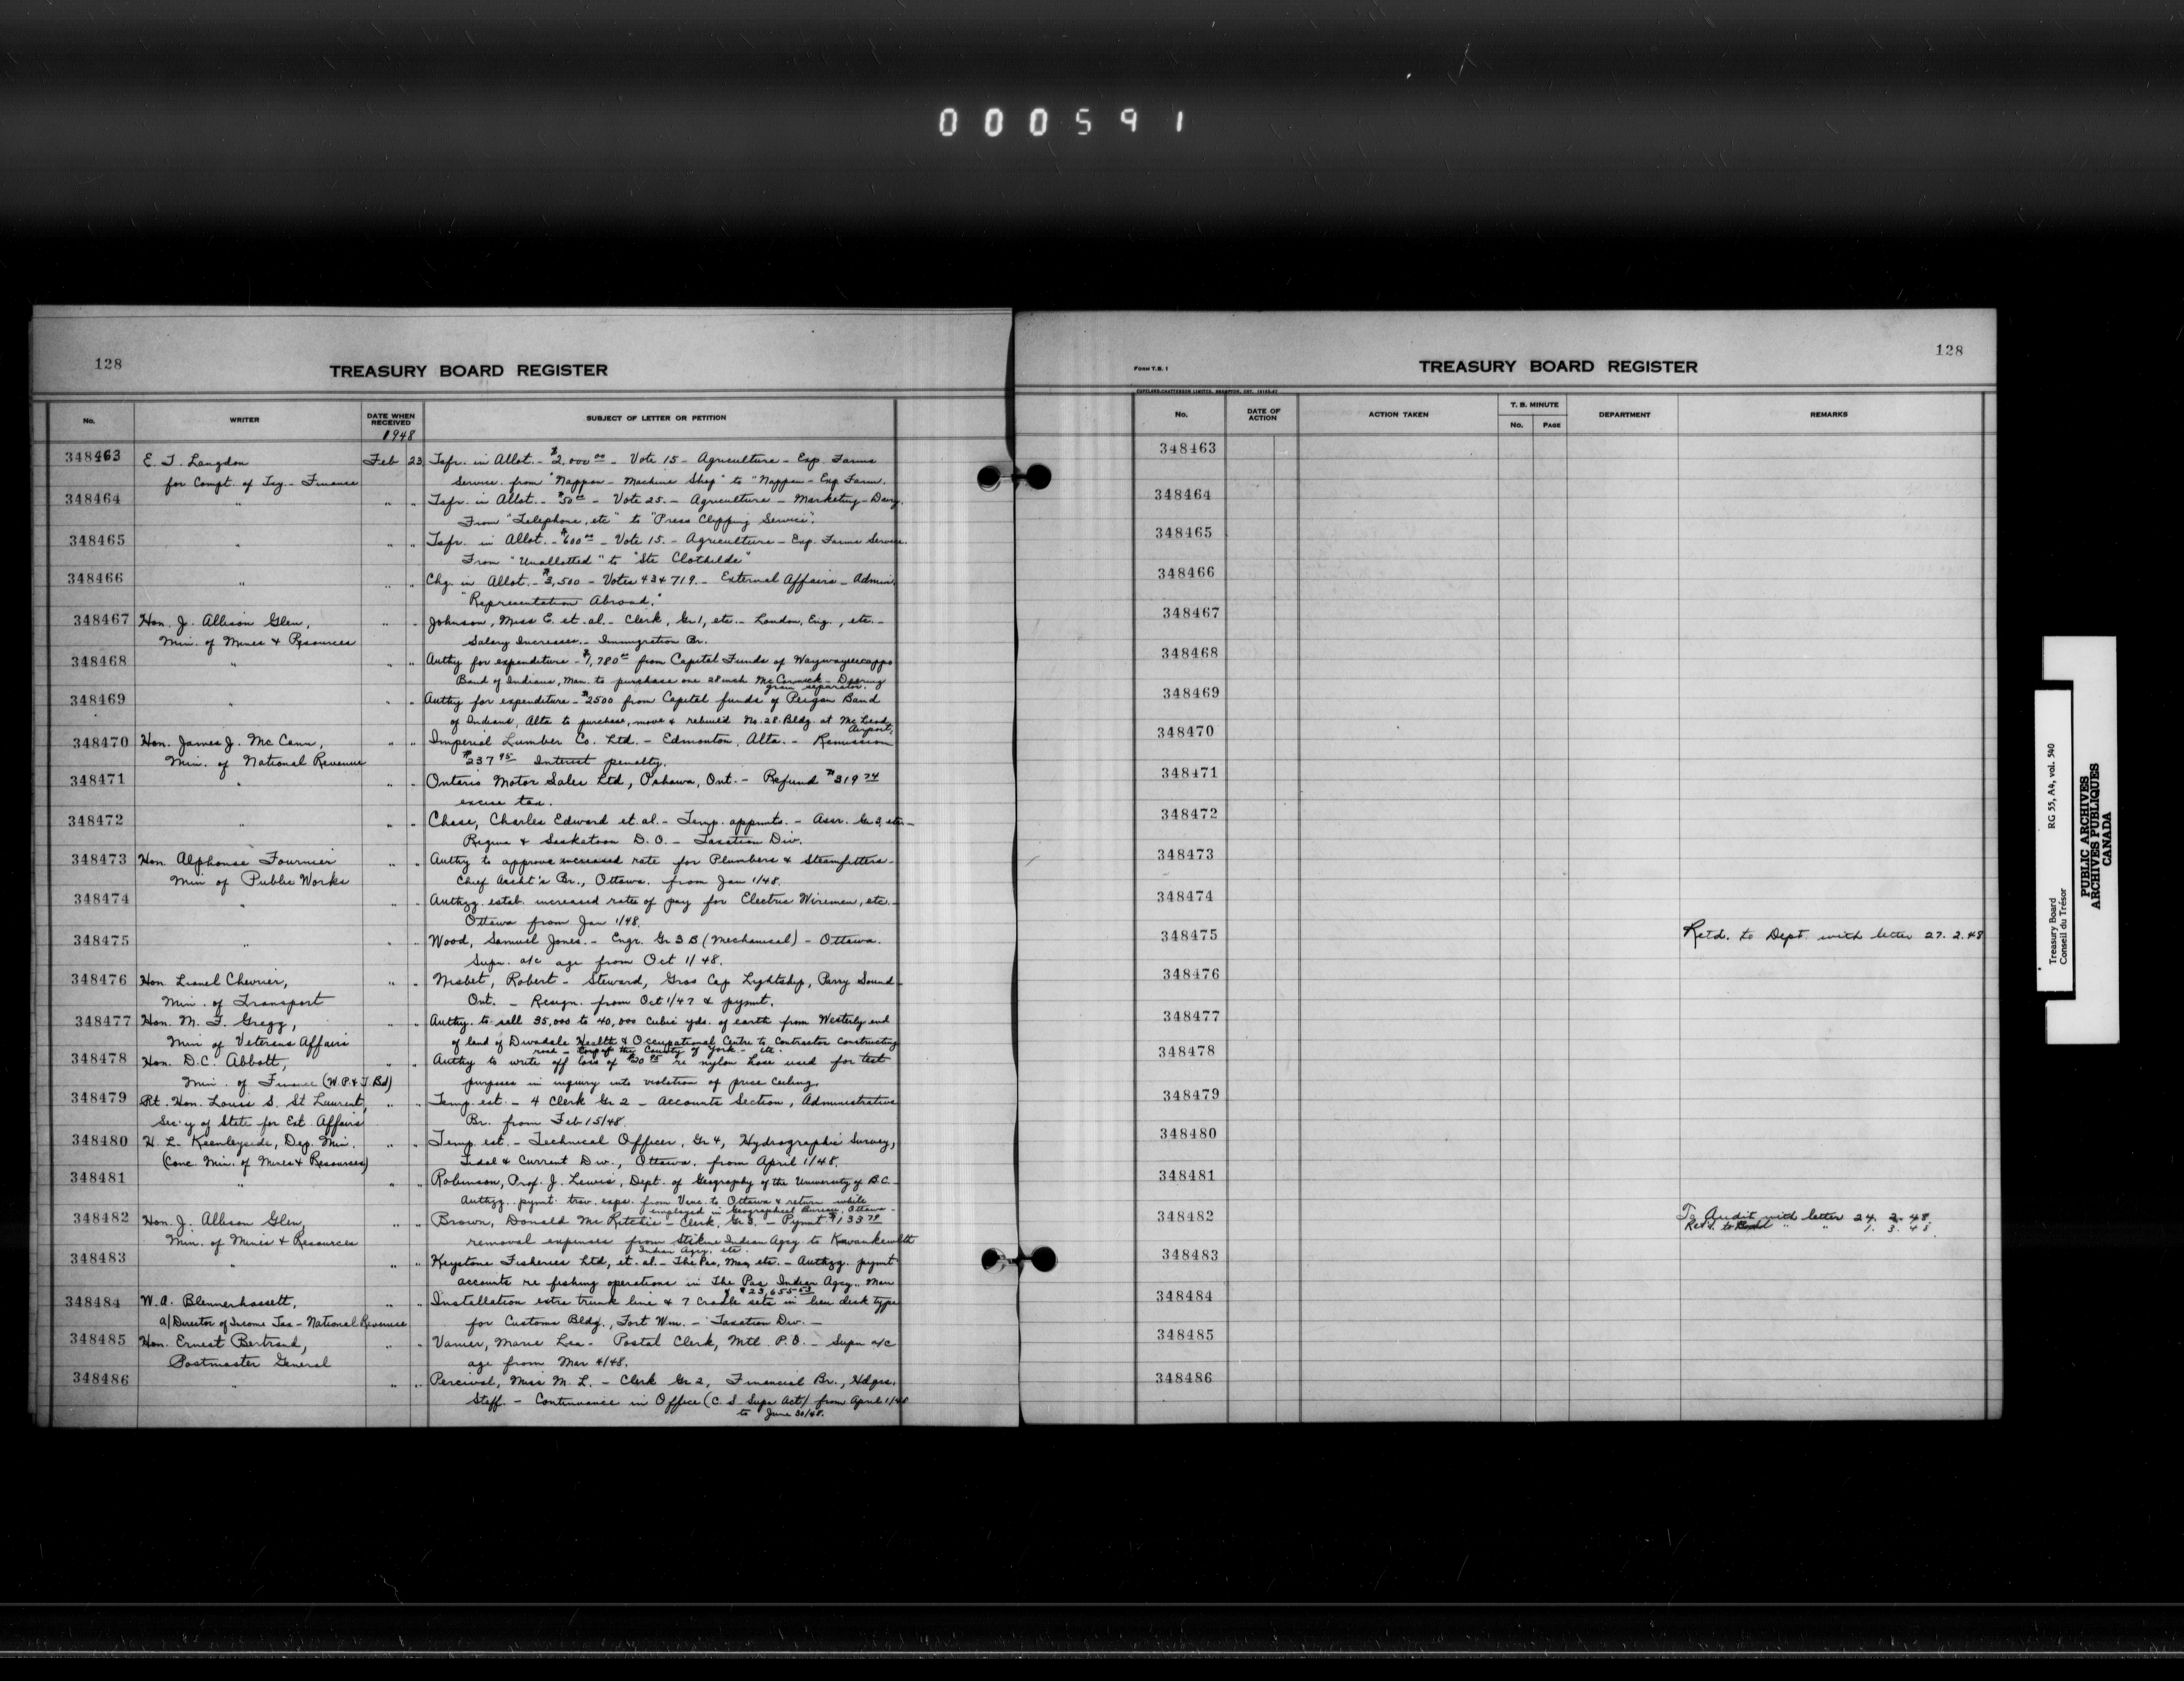 000591
128
TREASURY BOARD REGISTER
No.
WRITER
DATE WHEN RECEIVED
SUBJECT OF LETTER OR PETITION
1948
348463 E. T. Langdon Feb 23 Tsfr. in Allot. - $2,000.00 - Vote 15 - Agriculture - Exp. Farms
for Compt. of Tsy. - Finance Service. from "Nappan - Machine Shop" to "Nappan - Exp Farm.
348464 " " " Tsfr. in Allot. - $50.00 - Vote 25. - Agriculture - Marketing - Dairy.
From "Telephone, etc" to "Press Clipping Service".
348465 " " " Tsfr. in Allot. - $600.00 - Vote 15. - Agriculture - Exp. Farms Service.
From "Unallotted" to "Ste Clothilde"
348466 " " " Chg. in Allot. - $3,500 - Votes 43 & 719. - External Affairs - Admin.
"Representation Abroad."
348467 Hon. J. Allison Glen, " " Johnson, Miss E. et. al. - Clerk, Gr 1, etc. - London, Eng., etc. -
Min. of Mines & Resources Salary Increases. - Immigration Br.
348468 " " " Authy for expenditure - $1,780.00 from Capital Funds of Waywayseecappo
Band of Indians, Man. to purchase one 28 inch McCormick - Deering
grain separator.
348469 " " " Authy for expenditure - $2500 from Capital funds of Peigan Band
of Indians, Alta to purchase, move & rebuild No. 28 Bldg. at McLeod
Airport.
348470 Hon. James J. McCann, " " Imperial Lumber Co. Ltd. - Edmonton, Alta. - Remission
Min. of National Revenue $237.95 Interest penalty.
348471 " " " Ontario Motor Sales Ltd, Oshawa, Ont. - Refund $319.74
excise tax.
348472 " " " Chase, Charles Edward et. al. - Temp. appmts. - Assr. Gr 3, etc. -
Regina & Saskatoon D.O. - Taxation Div.
348473 Hon. Alphonse Fournier " " Authy to approve increased rate for Plumbers & Steamfitters -
Min of Public Works Chief Archt's Br., Ottawa. from Jan 1/48.
348474 " " " Authzg. estab. increased rates of pay for Electric Wiremen, etc. -
Ottawa from Jan 1/48.
348475 " " " Wood, Samuel Jones. - Engr. Gr 3 B (Mechanical) - Ottawa.
Supn. a/c age from Oct 1/48.
348476 Hon. Lionel Chevrier, " " Nisbet, Robert - Steward, Gros Cap Lightship, Parry Sound
Min. of Transport Ont. - Resign. from Oct 1/47 & pymt.
348477 Hon. M. F. Gregg, " " Authy. to sell 35,000 to 40,000 cubic yds. of earth from Westerly end
Min of Veterans Affairs of land of Divadale Health & Occupational Centre to Contractor constructing
road - Corp of the County of York - etc.
348478 Hon. D. C. Abbott, " " Authy to write off loss of re nylon hose used for test
Min. of Finance (W.P. & T. Bd) purposes in inquiry into violation of price ceiling.
348479 Rt. Hon. Louis S. St Laurent, " " Temp. est. - 4 Clerk Gr 2 - Accounts Section, Administrative
Sec'y of State for Ext. Affairs Br. from Feb 15/48.
348480 H. L. Keenleyside, Dep. Min. " " Temp. est. - Technical Officer, Gr 4, Hydrographic Survey,
(Conc. Min. of Mines & Resources) Tidal & Current Div., Ottawa. from April 1/48.
348481 " " " Robinson, Prof. J. Lewis, Dept. of Geography of the University of B.C. -
Authzg. pymt. trav. exps. from Vanc. to Ottawa & return while
employed in Geographical Bureau, Ottawa -
348482 Hon. J. Allison Glen, " " Brown, Donald McRitchie - Clerk, Gr 3. - Pymt $133.78
Min. of Mines & Resources removal expenses from Stikine Indian Agcy. to Kwawkewlth
Indian Agcy. etc.
348483 " " " Keystone Fisheries Ltd, et. al. - The Pas, Man, etc. - Authzg. pymt
accounts re fishing operations in The Pas Indian Agcy., Man
$23,655.53
348484 W. A. Blennerhassett, " " Installation extra trunk line & 7 Cradle sets in lieu desk type
a/Director of Income Tax - National Revenue for Customs Bldg., Fort Wm. - Taxation Div. -
348485 Hon. Ernest Bertrand, " " Vanier, Marie Lea - Postal Clerk, Mtl. P.O. - Supn a/c
Postmaster General age from Mar 4/48.
348486 " " " Percival, Miss M. L. - Clerk Gr 2, Financial Br., Hdqrs.
Staff - Continuance in Office (C.S Supn Act) from April 1/48
to June 30/48.
FORM T.B. 1
COPELAND-CHATTERSON LIMITED, BRAMPTON, ONT.
TREASURY BOARD REGISTER
128
No.
DATE OF ACTION
ACTION TAKEN
T. B. MINUTE
No.
PAGE
DEPARTMENT
REMARKS
348463
348464
348465
348466
348467
348468
348469
348470
348471
348472
348473
348474
348475 Retd. to Dept. with letter 27. 2. 48
348476
348477
348478
348479
348480
348481
348482 To Audit with letter 24. 2. 48.
Retd. to " " 1. 3. 48.
348483
348484
348485
348486
Treasury Board RG 55, A4, vol. 540
Conseil du Trésor
PUBLIC ARCHIVES
ARCHIVES PUBLIQUES
CANADA